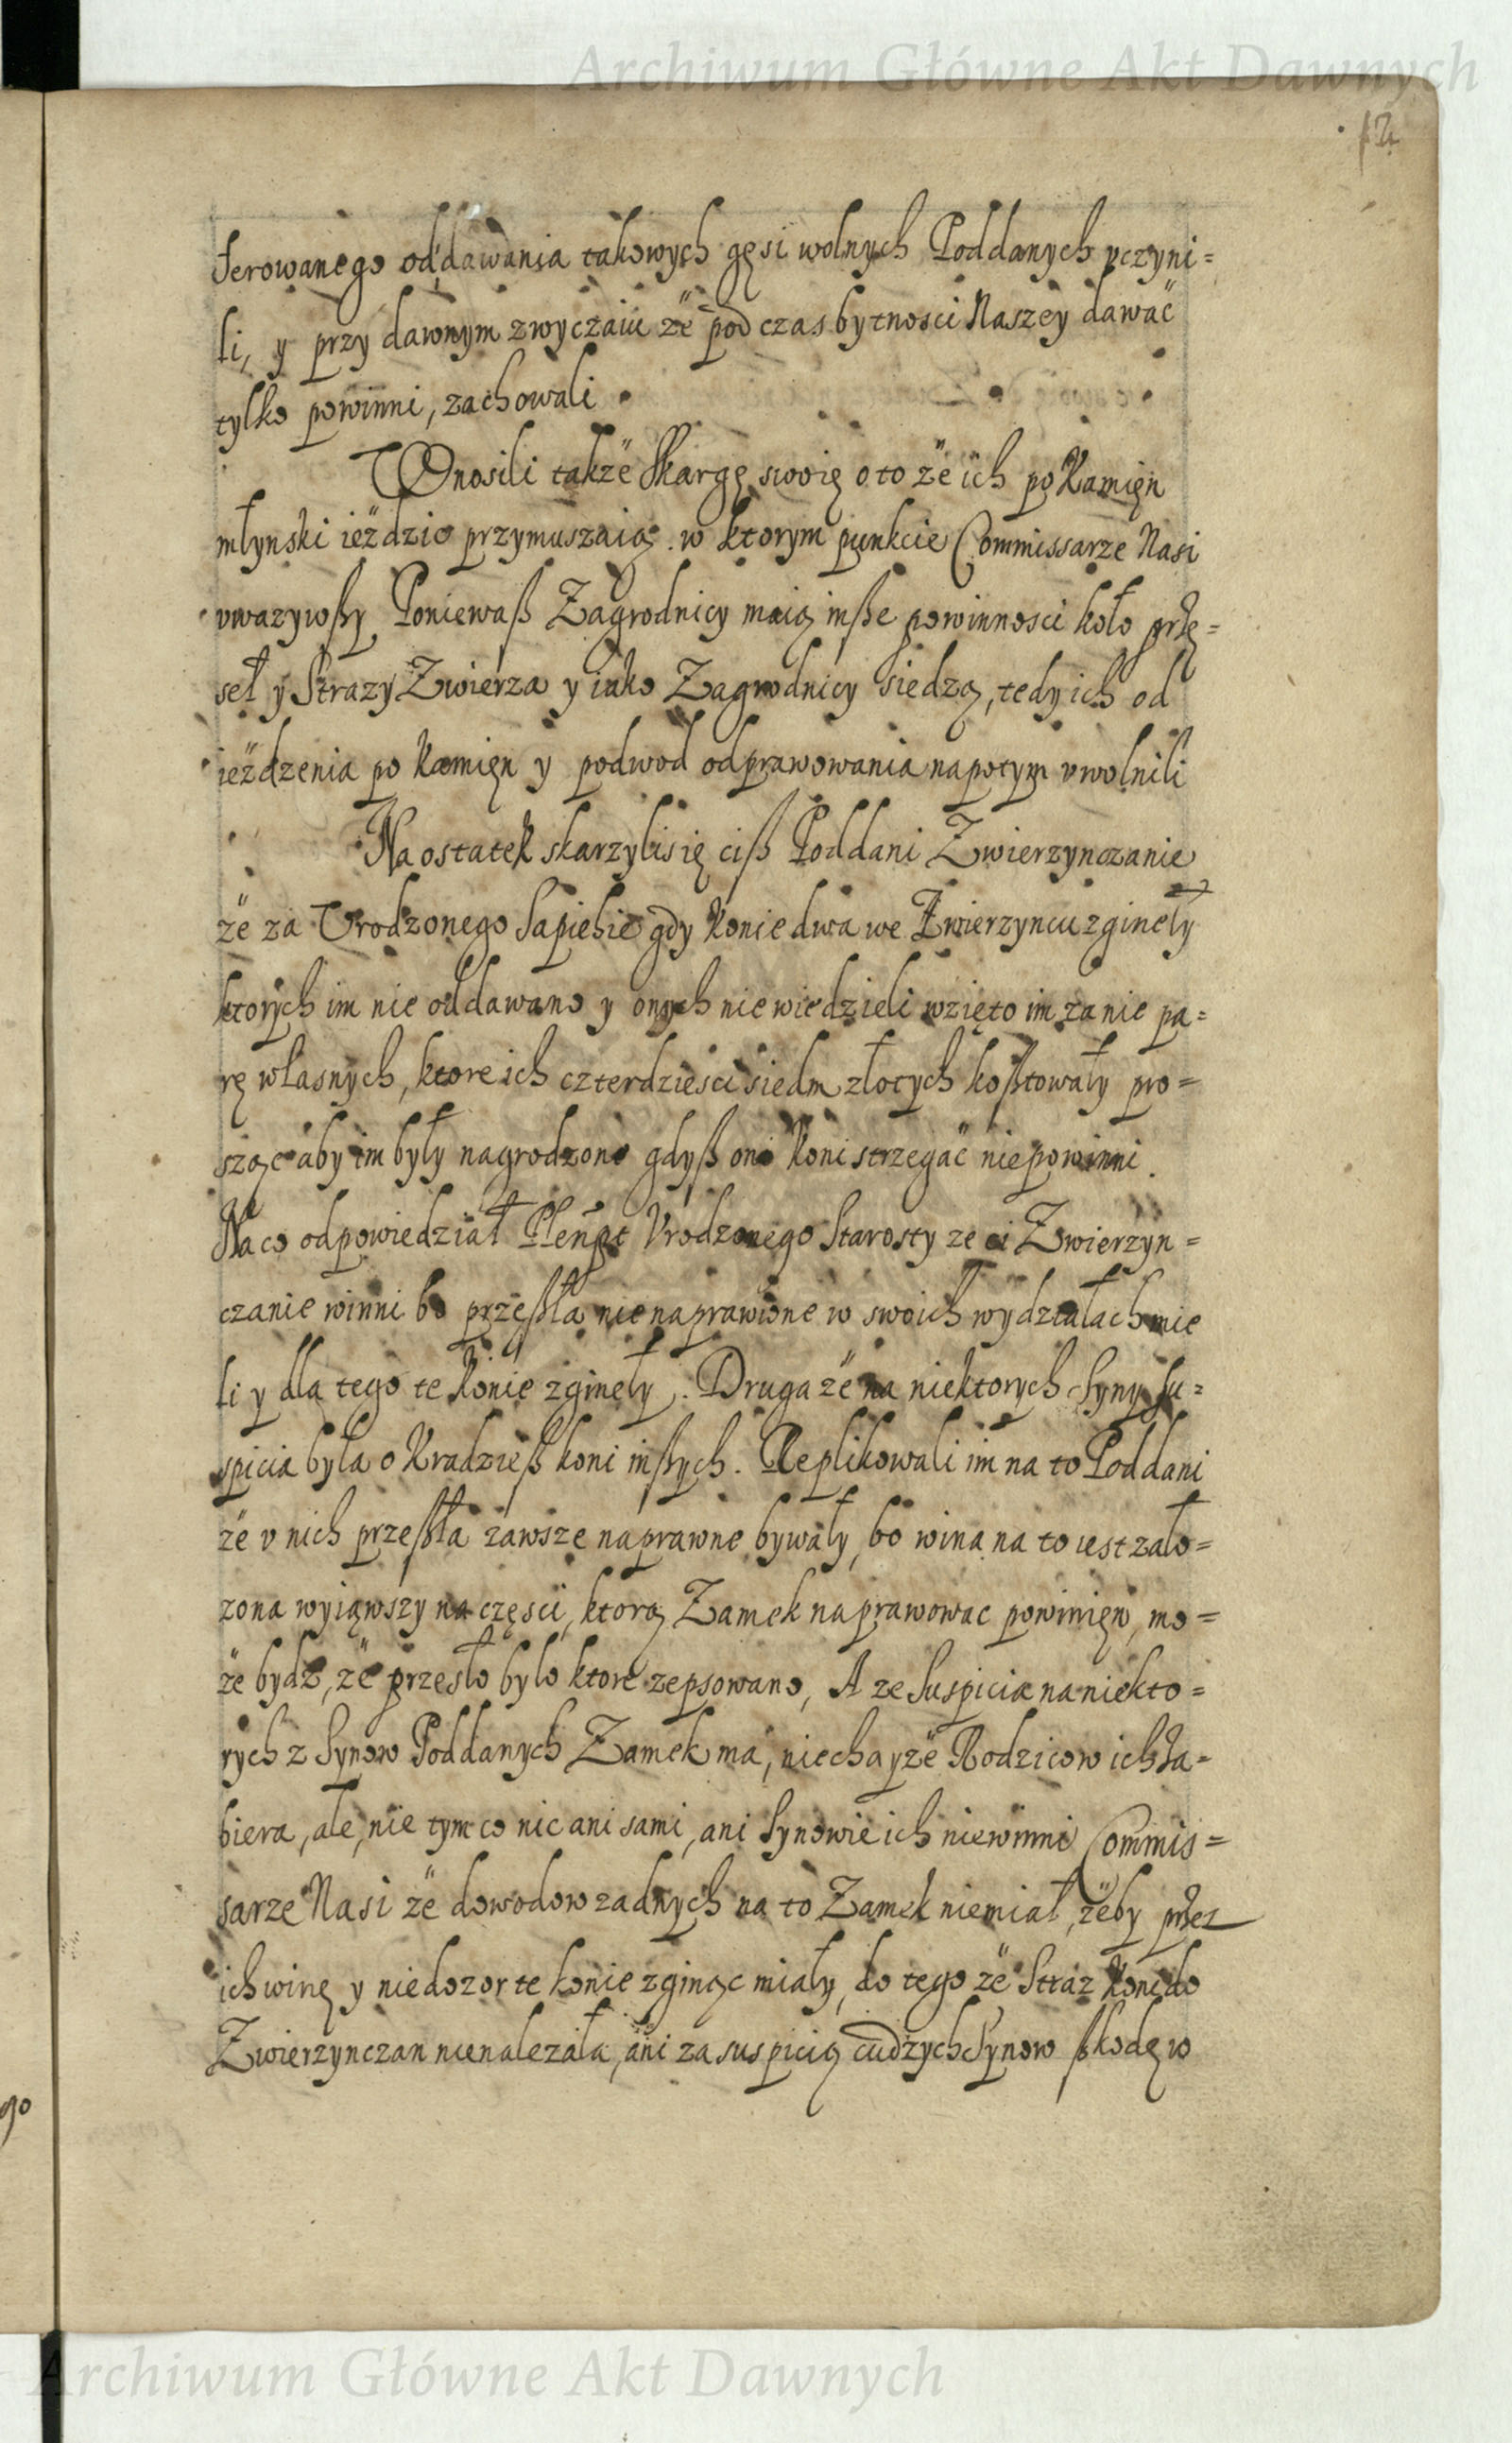 Archiwum Główne Akt Dawnych
ferowanego oddawania takowych gęsi wolnych Poddanych vczyni=
li, y przy dawnym zwyczaiu że pod czas bytnosci Naszey dawać
tylko powinni, zachowali
Wnosili także Skargę swoię o to że ich po Kamięn
młynski ieździc przymuszaią. w ktorym punkcie Commissarze Nasi
vwazywszy Poniewaß Zagrodnicy maią inße powinnosci koło przę=
seł y Strazy Zwierza y iako Zagrodnicy siedzą, tedy ich od
ieżdzenia po Kamięn y podwod odprawowania napotym vwolnili
Na ostatek skarzylisię ciß Poddani Zwierzynczanie
że za Vrodzonego Sapiehie gdy Konie dwa we Zwierzyncu zginęły
ktorych im nie oddawano y onych nie wiedzieli wzięto im za nie pa=
rę własnych, ktore ich czterdziesci siedm złotych koßtowały pro=
sząc aby im były nagrodzone gdyß oni Koni strzegać niepowinni.
Na co odpowiedział Plenpt Vrodzonego Starosty ze ci Zwierzyn=
czanie winni bo przęßła nie naprawione w swoich wydziałach mie
li y dla tego te Konie zginęły. Druga że na niektorych Syny su=
spicia była o Kradzieß koni inßych. Replikowali im na to Poddani
że v nich przeßła zawsze naprawne bywały, bo wina na to iest zało=
zona wyiąwszy na częsci, ktorą Zamek naprawowac powinięn, mo=
że bydz, że przęsło było ktore zepsowano, A ze Suspicia na niekto=
rych z Synow Poddanych Zamek ma, niechayże Rodzicow ich za=
biera, ale, nie tym co nic ani sami, ani Synowie ich niewinni Commis=
sarze Nasi że dowodow zadnych na to Zamek niemiał, żeby przez
ich winę y niedozor te konie zginąc miały, do tego że Straz Koni do
Zwierzynczan nienalezała, ani za suspicią cudzych Synow ßkodę w
go
Archiwum Główne Akt Dawnych